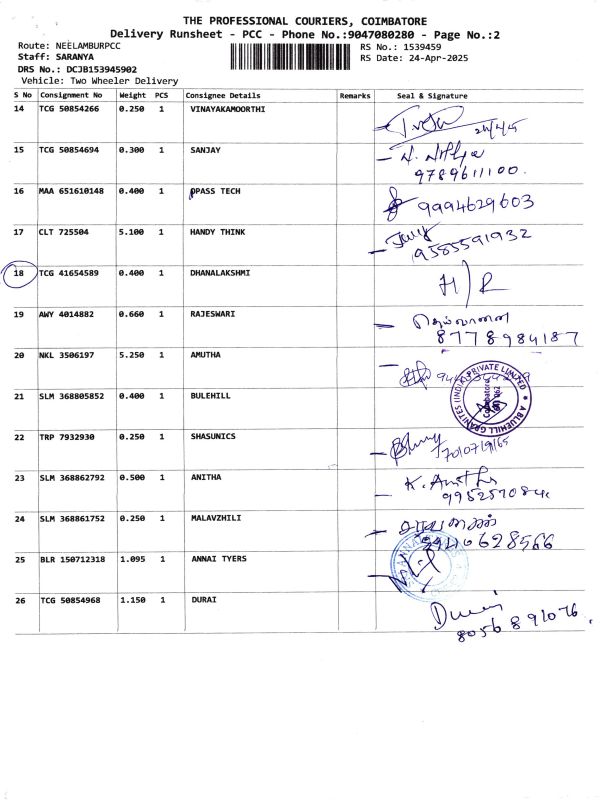 THE PROFESSIONAL COURIERS, COIMBATORE
Delivery Runsheet - PCC - Phone No.:9047080280 - Page No.:2
Route: NEELAMBURPCC
RS No.: 1539459
Staff: SARANYA
RS Date: 24-Apr-2025
DRS No.: DCJB153945902
Vehicle: Two Wheeler Delivery
S No Consignment No Weight PCS Consignee Details Remarks Seal & Signature
14 TCG 50854266 0.250 1 VINAYAKAMOORTHI
15 TCG 50854694 0.300 1 SANJAY
9789611100.
16 MAA 651610148 0.400 1 PPASS TECH 9994629603
17 CLT 725504 5.100 1 HANDY THINK
9585591932
18 TCG 41654589 0.400 1 DHANALAKSHMI H/R
19 AWY 4014882 0.660 1 RAJESWARI
8778984187
20 NKL 3506197 5.250 1 AMUTHA
21 SLM 368805852 0.400 1 BULEHILL A BLUEHILL GRANITES (INDIA) PRIVATE LIMITED Coimbatore
22 TRP 7932930 0.250 1 SHASUNICS
23 SLM 368862792 0.500 1 ANITHA K. Anitha
24 SLM 368861752 0.250 1 MALAVZHILI
25 BLR 150712318 1.095 1 ANNAI TYERS
26 TCG 50854968 1.150 1 DURAI Durai
8056891076.